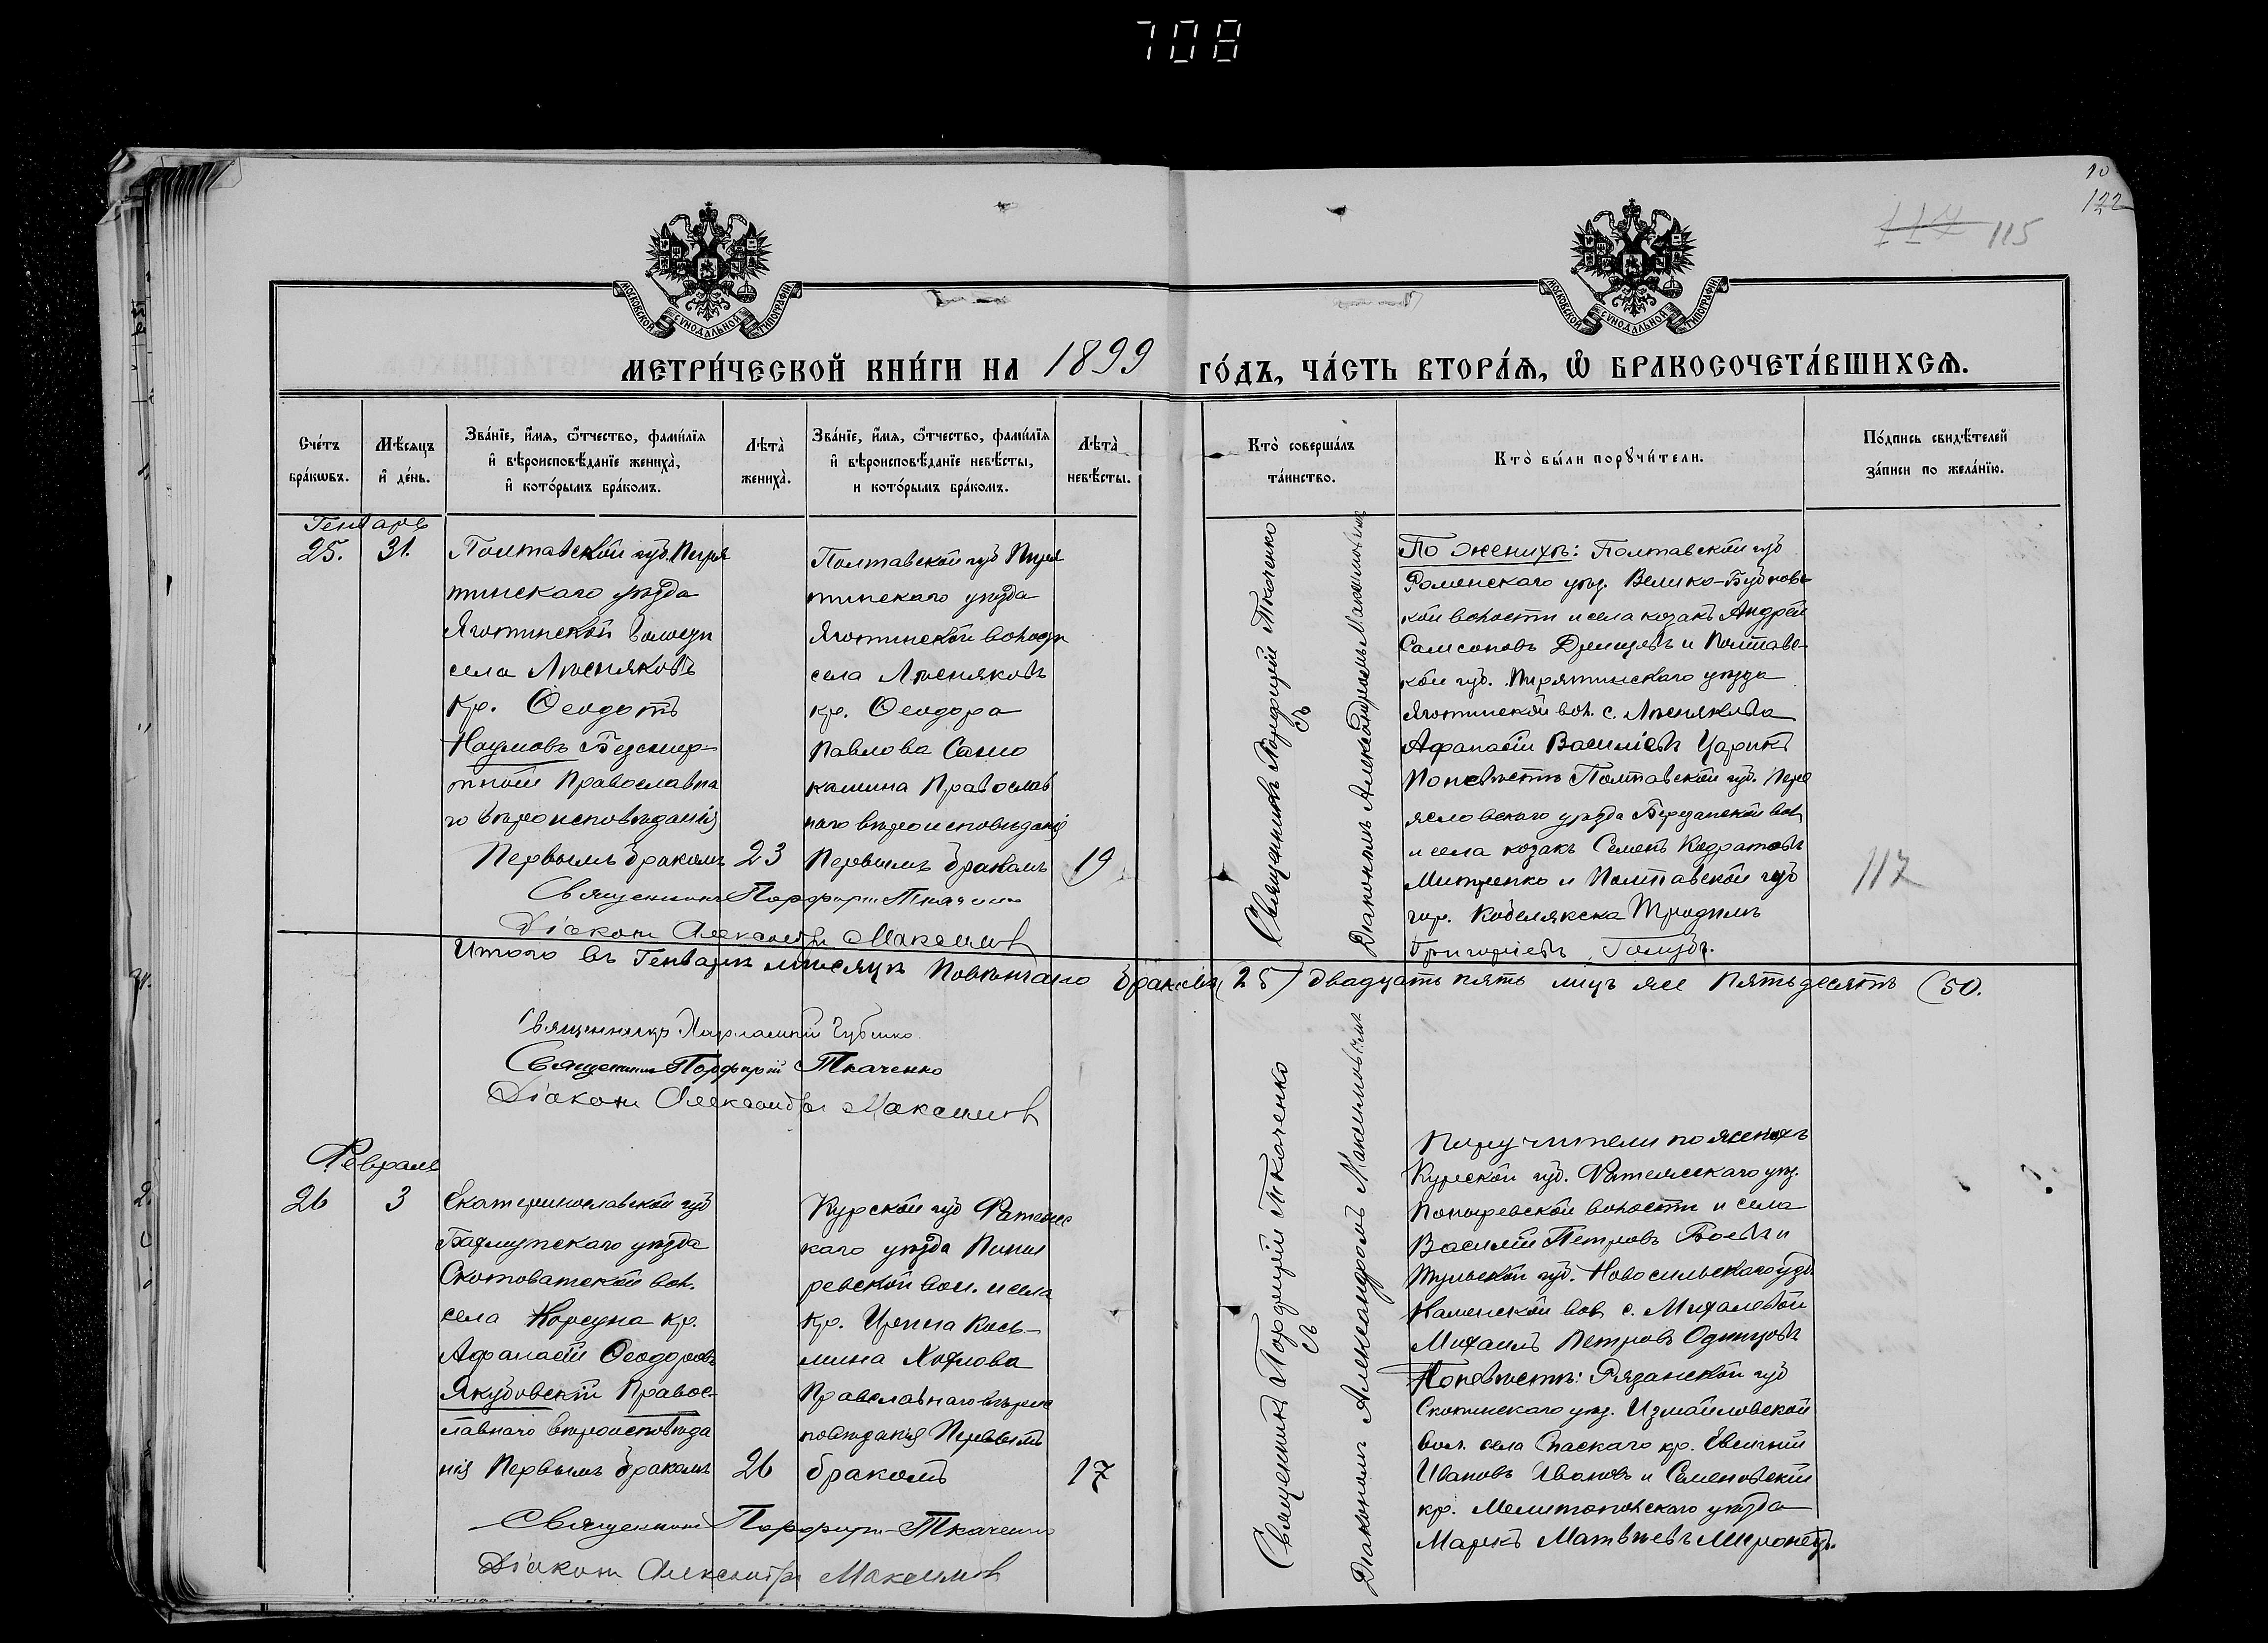 708
10
122
114 115
МОСКОВСКОЙ СѴНОДАЛЬНОЙ ТИПОГРАФІИ
МОСКОВСКОЙ СѴНОДАЛЬНОЙ ТИПОГРАФІИ
МЕТРИ́ЧЕСКОЙ КНИ́ГИ НА 1899 ГО́ДЪ, ЧА́СТЬ ВТОРА́Ѧ, Ѽ БРАКОСОЧЕТА́ВШИХСѦ.
Сче́тъ
бра́кѡвъ.
Мѣ́сѧцъ
и҆ де́нь.
Зва́нїе, и҆́мѧ, ѻ҆́тчество, фами́лїѧ
и҆ вѣроисповѣ́данїе жениха̀,
и҆ кото́рымъ бра́комъ.
Лѣта̀
жениха̀.
Зва́нїе, и҆́мѧ, ѻ҆́тчество, фами́лїѧ
и҆ вѣроисповѣ́данїе невѣ́сты,
и кото́рымъ бра́комъ.
Лѣта̀
невѣ́сты.
Кто̀ соверша́лъ
та́инство.
Кто̀ бы́ли порꙋчи́тели.
По́дпись свидѣ́телей
за́писи по жела́нїю.
Генварь
25.
31.
Полтавской губ. Пиря
тинскаго уѣзда
Яготинской волости
села Лисняковъ
кр. Ѳеодотъ
Наумовъ Безсмер-
тный Православна
го вѣроисповѣданія
Первымъ бракомъ
23
Полтавской губ Пиря
тинскаго уѣзда
Яготинской волости
села Лисняковъ
кр. Ѳеодора
Павлова Само
кашина Православ
наго вѣроисповѣданія
Первымъ бракомъ
19
Священникъ Порфирій Ткаченко
Діаконъ Александръ Максимовъ
Священникъ Порфирій Ткаченко
съ
Діакономъ Александромъ Максимовичемъ
По женихѣ: Полтавской губ
Роменскаго уѣз. Велико-Бубновс
кой волости и села козакъ Андрей
Самсоновъ и Полтавс-
кой губ. Пирятинскаго уѣзда
Яготинской вол. с. Лисняковъ
Афанасій Василіевъ Царикъ
По невѣстѣ Полтавской губ. Пере
яславскаго уѣзда Березанской вол
и села козакъ Семенъ Кодратовъ
Митренко и Полтавской губ
гор. Кобелякска Трофимъ
Григоріевъ Голубъ.
117
Итого въ Генварѣ мѣсяцѣ Повѣнчано браковъ (25) двадцать пять лицъ же Пятьдесятъ (50.
Священникъ Харлампій Губенко
Священникъ Порфирій Ткаченко
Діаконъ Александръ Максимовъ
Февраль
26
3
Екатеринославской губ
Бахмутскаго уѣзда
Скотоватской вол.
села Корсуна кр.
Афанасій Ѳеодоровъ
Якубовскій Правос-
лавнаго вѣроисповѣда
нія Первымъ бракомъ
26
Курской губ Фатежс
каго уѣзда Поны
ревской вол. и села
кр. Ирина Кось-
мина Хохлова
Православнаго вѣроис
повѣданія Первымъ
бракомъ
17
Священникъ Порфирій Ткаченко
Діаконъ Александръ Максимовъ
Священникъ Порфирій Ткаченко
съ
Діакономъ Александромъ Максимовичемъ
Поручители по женихѣ
Курской губ. Фатежскаго уѣз.
Поныревской волости и села
Василій Петровъ Боевъ и
Тульской губ. Новосильскаго уѣз.
Каменской вол. с. Михалевой
Михаилъ Петровъ Одинцовъ
По невѣстѣ: Рязанской губ
Скопинскаго уѣз. Измайловской
вол. села Спаскаго кр. Евгеній
Ивановъ Ивановъ и Семеновскій
кр. Мелитопольскаго уѣзда
Маркъ Матвѣевъ Миронецъ.